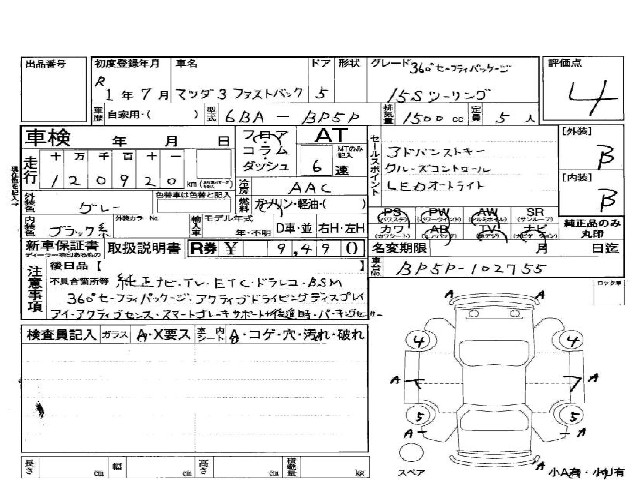 出品番号 初度登録年月 車名 ドア 形状 グレード 360°セーフティパッケージ 評価点
R 1年7月 マツダ3 ファストバック 5 15Sツーリング 4
車歴 自家用・( ) 型式 6BA - BP5P 排気量 1500 cc 定員 5 人
車検 年 月 日 フロア・コラム・ダッシュ AT MTのみ記入 6 速 セールスポイント [外装] B
走行 十 万 千 百 十 一
1 2 0 9 2 0 km
アドバンストキー
クルーズコントロール
LEDオートライト
[内装] B
外装色 グレー 色替車は色替と記入 冷房 AAC
燃料 ガソリン・軽油・( )
内装色 ブラック系 外装カラーNo. 輸入車 モデル年式 年・不明 D車・並 右H・左H
PS PW AW SR
カワ AB TV ナビ
純正品のみ丸印
新車保証書 取扱説明書 R券 ¥ 9,490 名変期限 月 日迄
後日品【
車台No. BP5P-102755
注意事項 不具合箇所等 純正ナビ・TV・ETC・ドラレコ・BSM
360°セーフティパッケージ・アクティブドライビングディスプレイ
アイ・アクティブセンス・スマートブレーキサポート後退時・パーキングセンサー
検査員記入 ガラス A・X要ス 室内シート A・コゲ・穴・汚れ・破れ
4 4
A A A A
5 5
A A
A
長さ cm 幅 cm 高さ cm 積載量 kg スペア 小A有・小U有